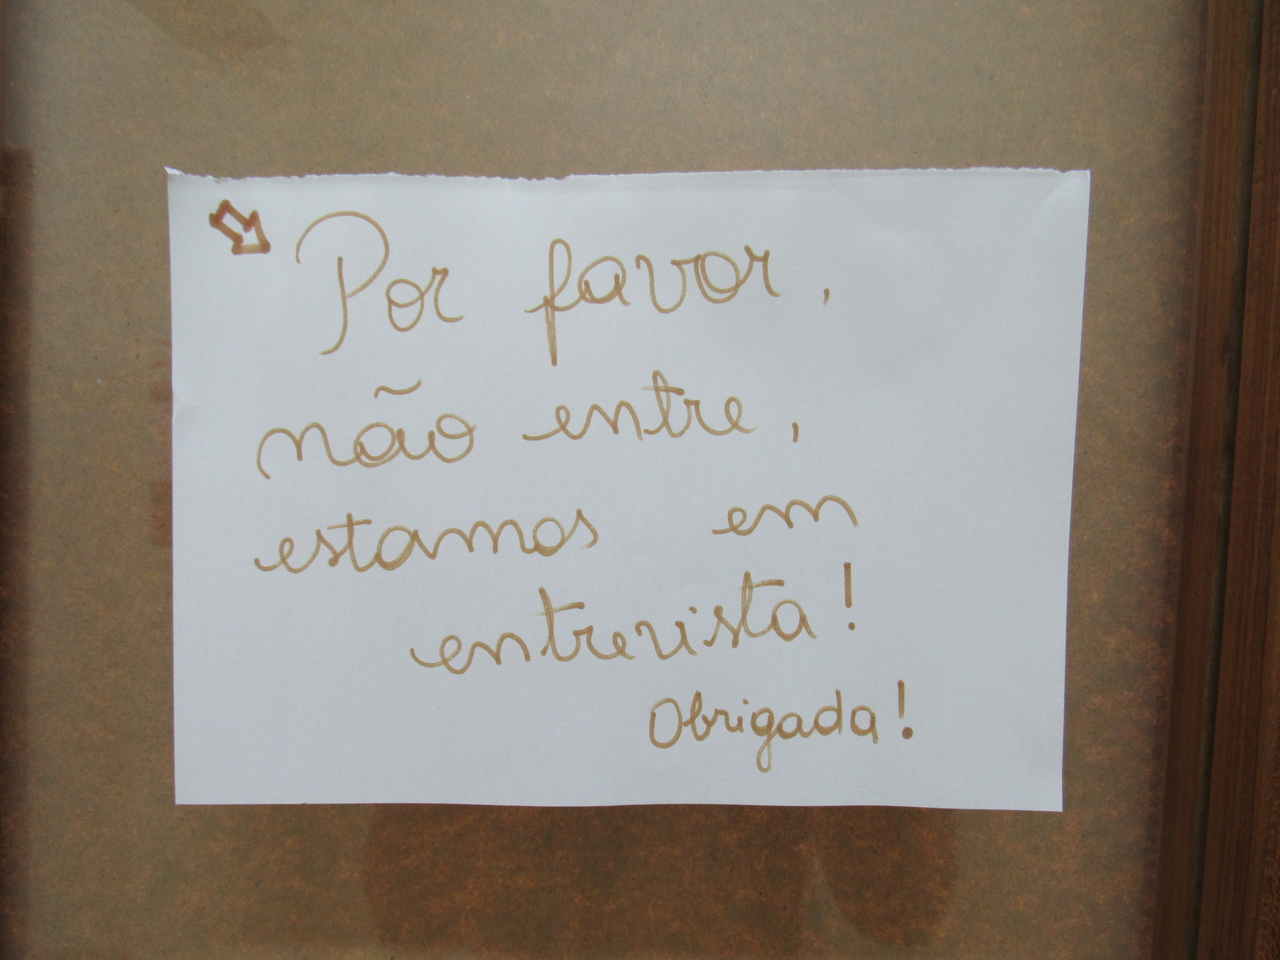 Por favor,
não entre,
estamos em
entrevista!
Obrigada!